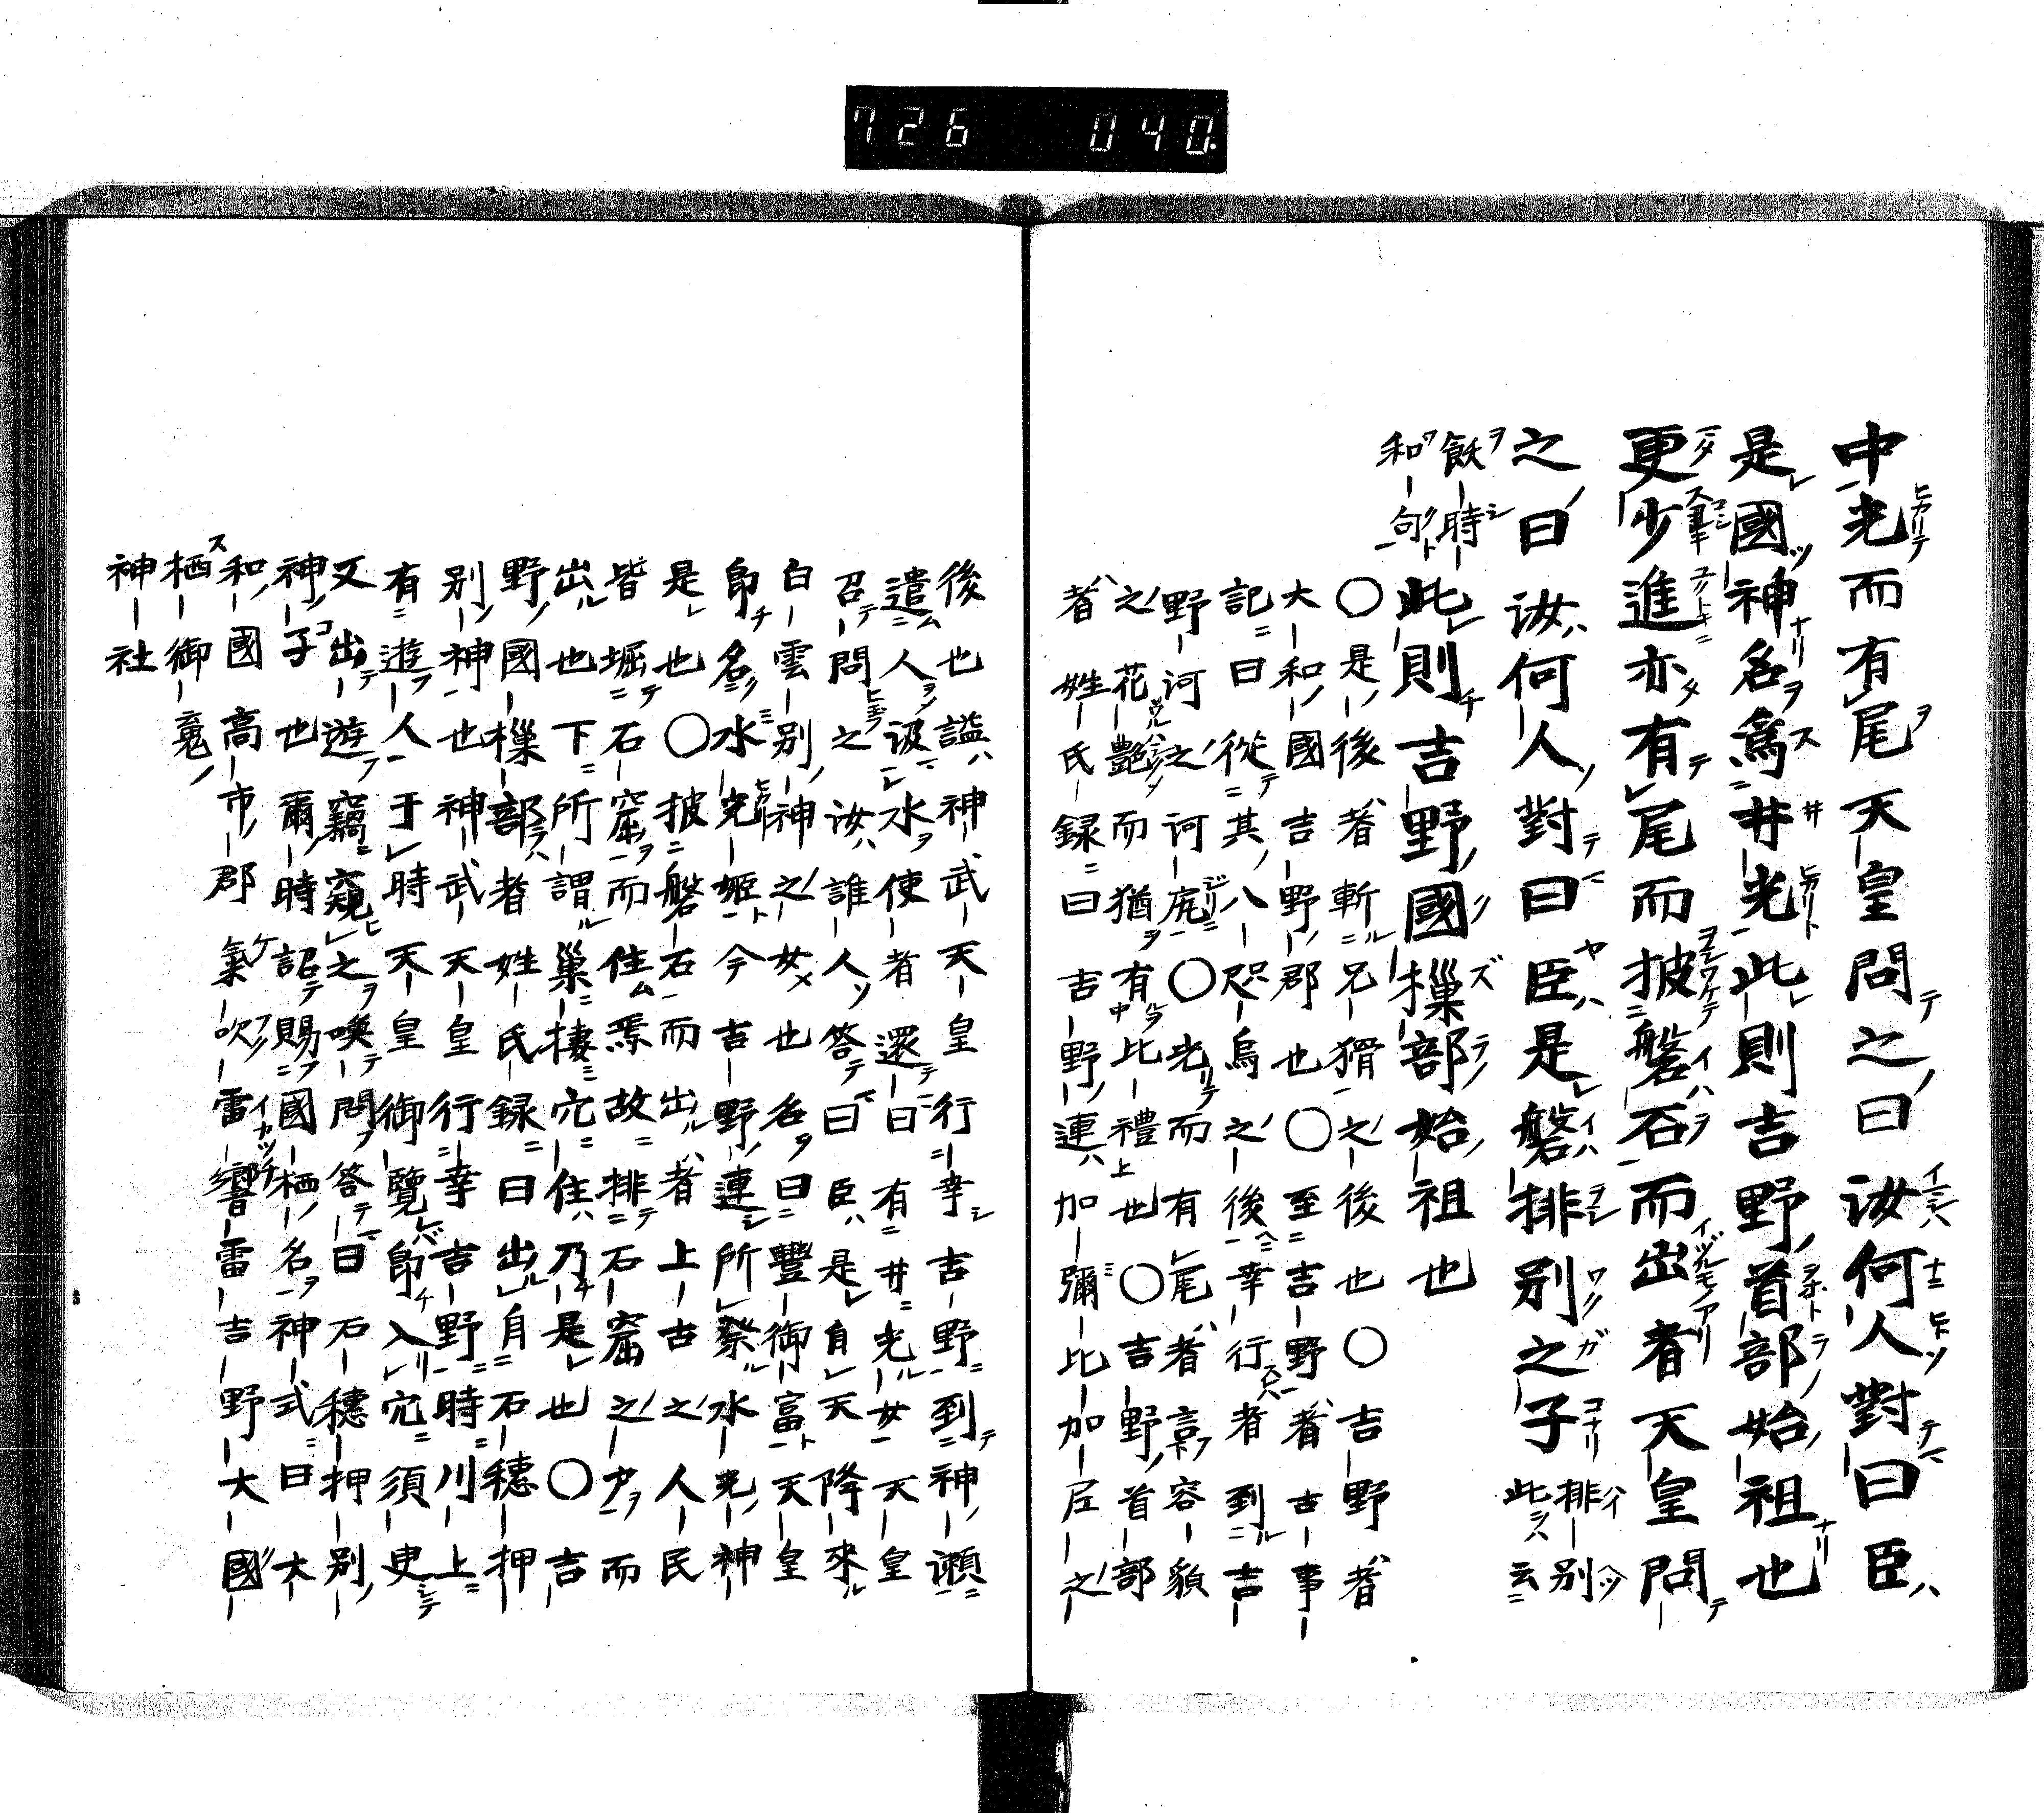 726 040
中光而有尾天皇問之曰汝何人對曰臣
是國神名爲井光此則吉野首部始祖也
更少進亦有尾而披磐石而出者天皇問
之曰汝何人對曰臣是磐排別之子排別此云
飫時和句此則吉野國樔部始祖也
〇是後者斬兄猾之後也〇吉野者
大和國吉野郡也〇至吉野者古事
記曰從其八咫烏之後幸行者到吉
野河之河尻〇光而有尾者言容貌
之花艶而猶有比禮也〇吉野首部
者姓氏録曰吉野連加彌比加尼之
後也謚神武天皇行幸吉野到神瀬
遣人汲水使者還曰有井光女天皇
召問之汝誰人答曰臣是自天降來
白雲別神之女也名曰豐御富天皇
卽名水光姫今吉野連所祭水光神
是也〇披磐石而出者上古之人民
皆堀石窟而住焉故排石窟之而
出也下所謂巢棲穴住乃是也〇吉
野國樔部者姓氏録曰出自石穗押
別神也神武天皇行幸吉野時川上
有遊人于時天皇御覽卽入穴須臾
又出遊竊窺之喚問答曰石穗押別
神子也爾時詔賜國栖名神式曰大
和國高市郡氣吹雷響雷吉野大國
栖御魂
神社